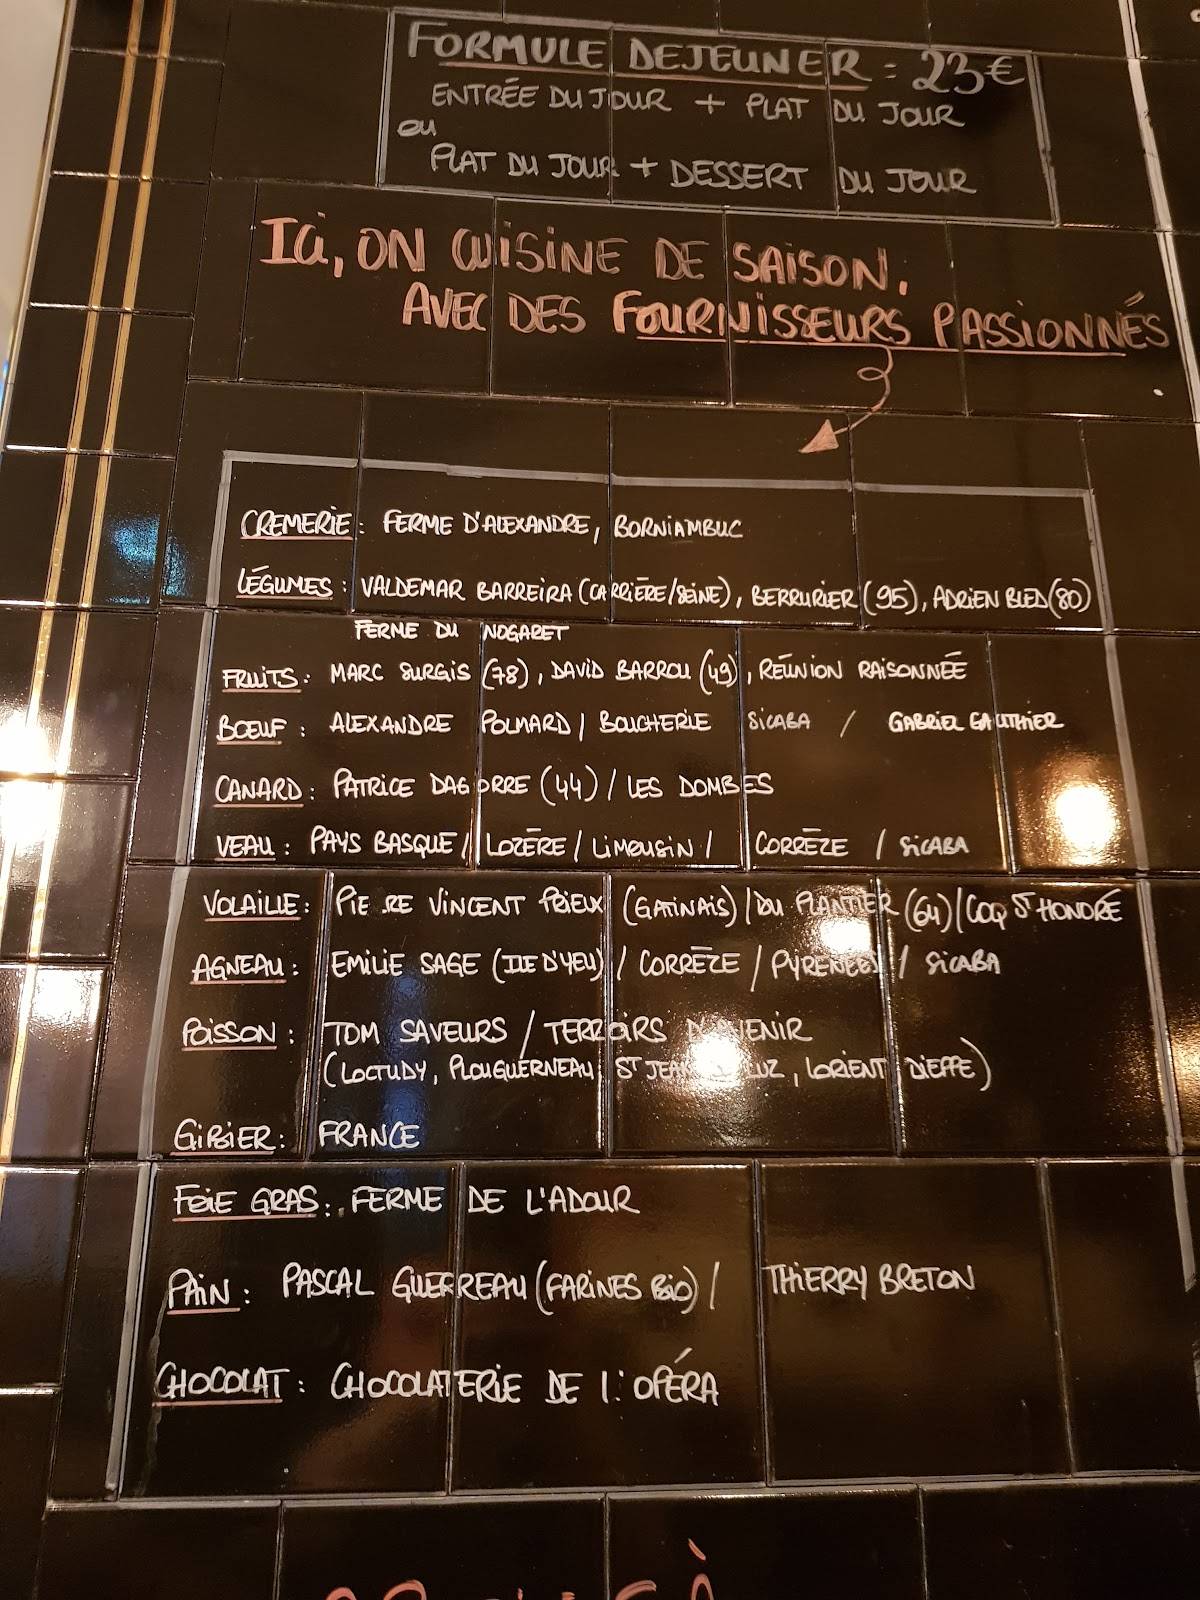 FORMULE DEJEUNER = 23€
ENTRÉE DU JOUR + PLAT DU JOUR
ou
PLAT DU JOUR + DESSERT DU JOUR
ICI, ON CUISINE DE SAISON,
AVEC DES FOURNISSEURS PASSIONNÉS
CREMERIE : FERME D'ALEXANDRE, BORNIAMBUC
LÉGUMES : VALDEMAR BARREIRA (CARRIÈRE/SEINE), BERRURIER (95), ADRIEN BLED (80)
FERME DU NOGARET
FRUITS : MARC SURGIS (78), DAVID BARROU (49), RÉUNION RAISONNÉE
BOEUF : ALEXANDRE POLMARD / BOUCHERIE SICABA / GABRIEL GAUTHIER
CANARD : PATRICE DAGORRE (44) / LES DOMBES
VEAU : PAYS BASQUE / LOZÈRE / LIMOUSIN / CORRÈZE / SICABA
VOLAILLE : PIE RE VINCENT PRIEUX (GATINAIS) / DU PLANTIER (64) / COQ ST HONORÉ
AGNEAU : EMILIE SAGE (ILE D'YEU) / CORRÈZE / PYRENEES / SICABA
POISSON : TOM SAVEURS / TERROIRS D'AVENIR
(LOCTUDY, PLOUGUERNEAU, ST JEAN LUZ, LORIENT, DIEPPE)
GIBIER : FRANCE
FOIE GRAS : FERME DE L'ADOUR
PAIN : PASCAL GUERREAU (FARINES BIO) / THIERRY BRETON
CHOCOLAT : CHOCOLATERIE DE L'OPÉRA